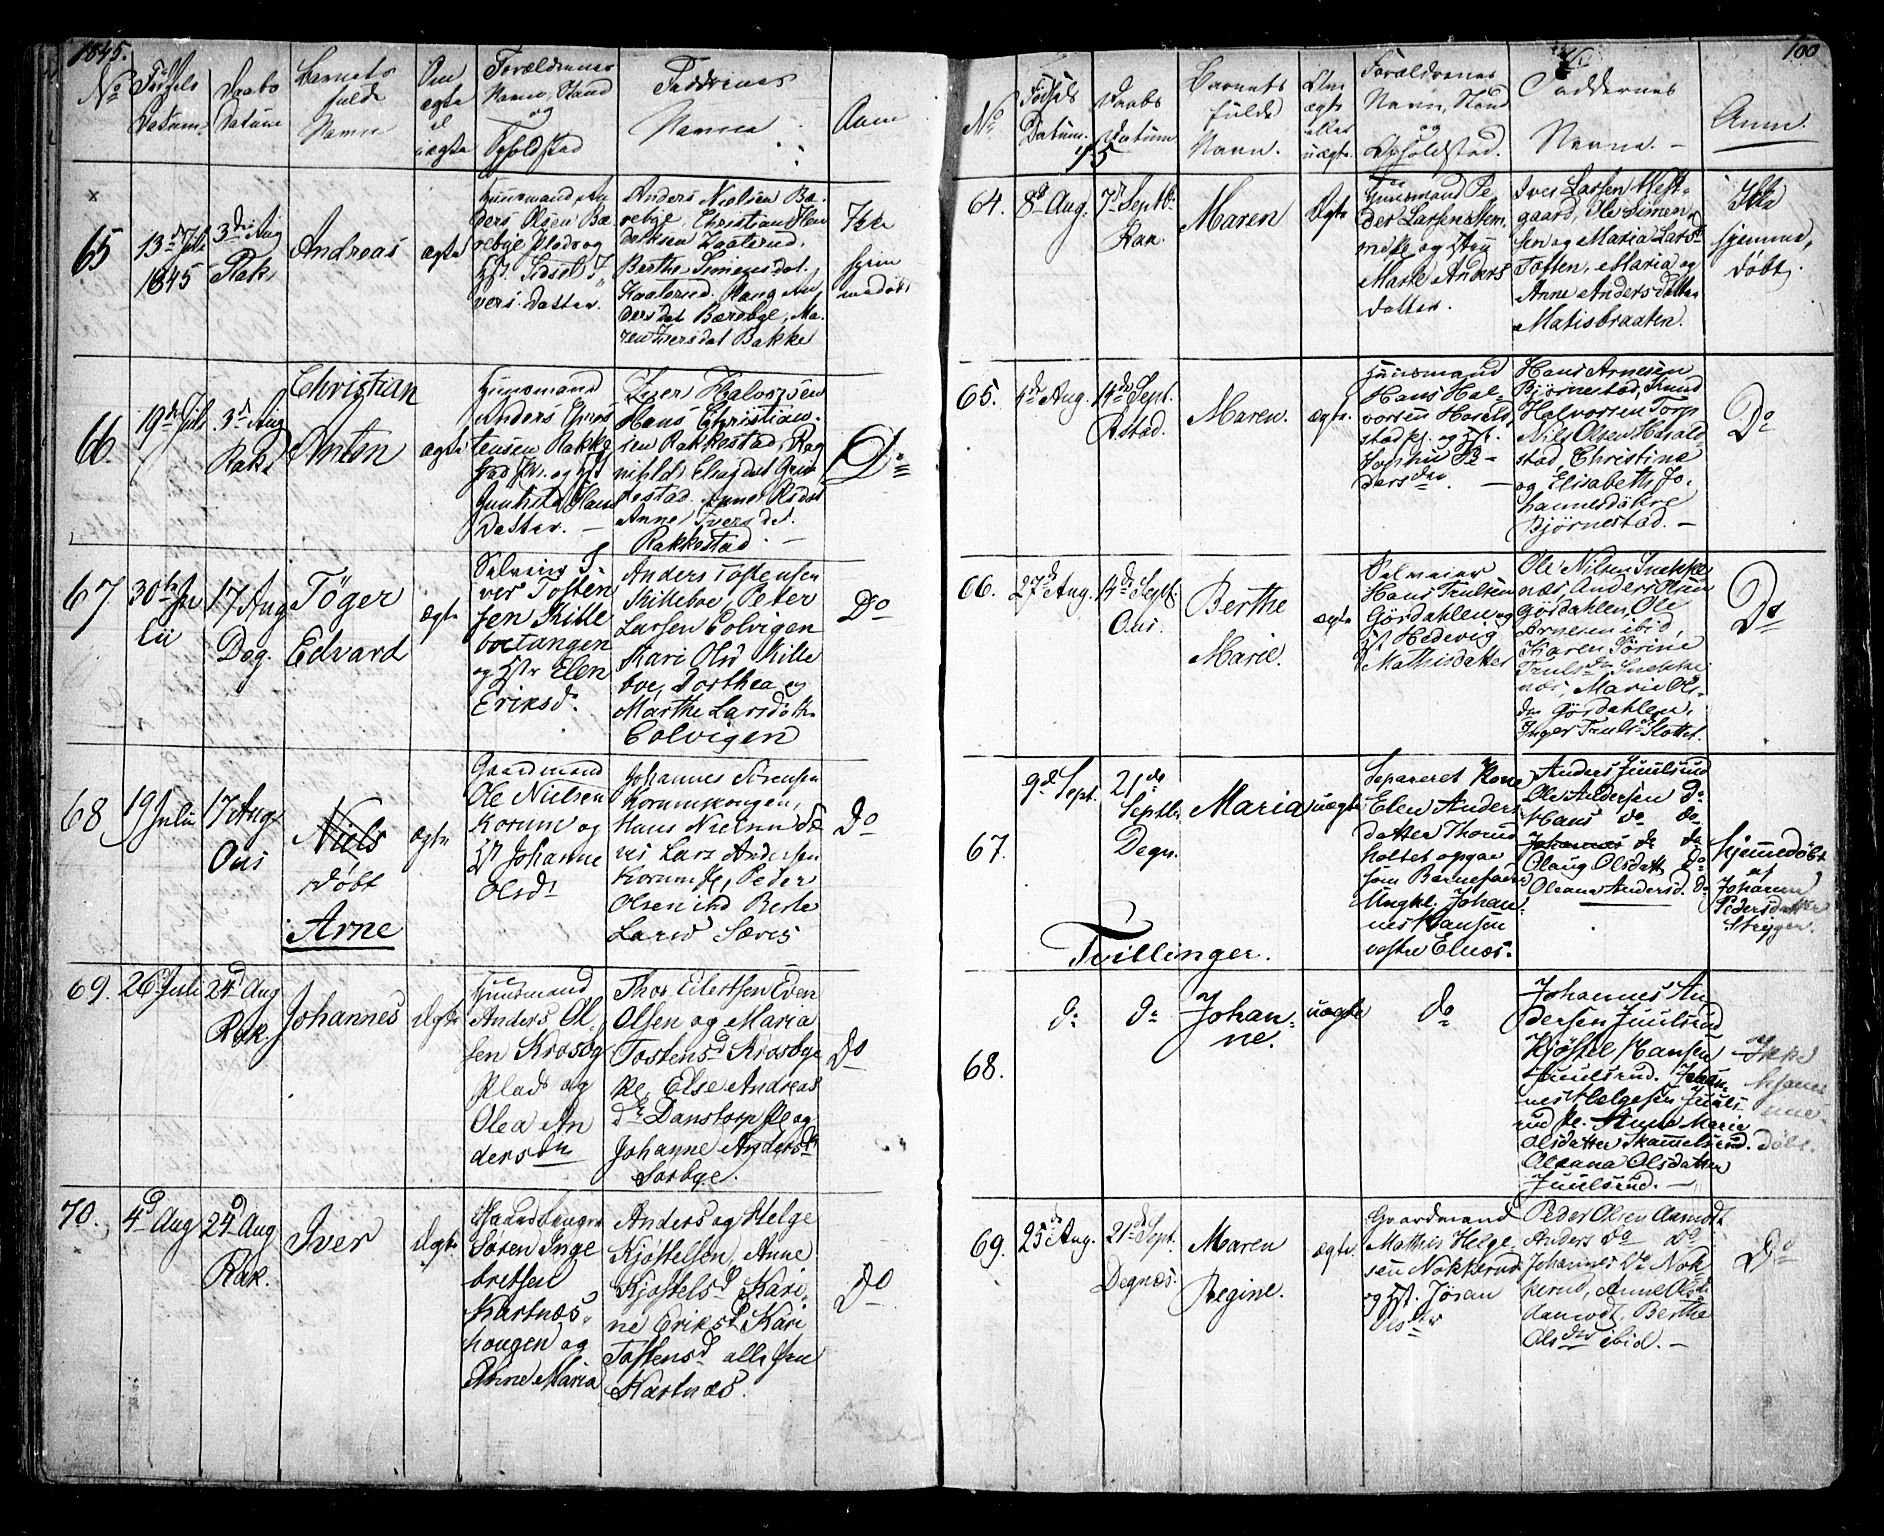 1845.
No
Fødsels
Datum.
Daabs
Datum
Barnets
fulde
Navn
Om
ægte
el
uægte
Forældrenes
Navn, Stand
og
Opholdstad
Faddernes
Navne
Anm
65
13de Juli
1845
3die Aug
Rak
Andreas
ægte
Huusmand An
ders Olsen Bæ
rebye Plads og
Hst. Sidsel I
vers Datter.
Anders Nielsen Bæ
rebye Christian Hen
driksen Kaaterud.
Berthe Simensdat.
Kaaterud. An
dersdat Bærebye, Ma
ren Iversdat Bakke
Ikke
hjem
medøbt
66
19de Juli
3d Aug
Rak
Christian
Anton
ægte
Huusmand
Anders
tensen Rakke
stad Pl. og Hst
Hans
Datter. —
Iver Halvorsen
Hans Christian-
sen Rakkestad, Rag
nihld
Anne Olsdat
Anne Iversdat.
Rakkestad. —
Do
67
30te Ju
lii
17 Aug
Deg.
Töger
Edvard
ægte
Selveier I-
ver Tosten
sen Kille
boetangen
og Hstr Elen
Eriksd.
Anders Tostensen
Killeboe, Peter
Larsen Colvigen
Mari Olsd Kille
boe, Dorthea og
Marthe Larsdøttr
Colvigen
Do
68
19 Julii
17 Aug
Ous
Niels
døbt
Arne
ægte
Gaardmand
Ole Nielsen
Korum og
Hst Johanne
Olsdr
Johannes Sörensen
Korumshougen,
Hans Nielsen Sæ
ves Lars Andersen
Korum, Peder
Olsen ibid Berte
Larsd Sæves
Do
69.
26 Juli
24d Aug
Rak.
Johannes
Ægte
Huusmand
Anders Ol-
sen Krosby
Plads og
Olea An
dersdtr
Thor Eilertsen Even
Olsen og Maria
Tostensd Krosbye
Pl, Else Andreas
dtr Danstorp Pl og
Johanne Andersdtr
Sorbye.
Do
70.
4d Aug
24d Aug
Rak.
Iver
Ægte
Søren Inge
bretsen
Kastnæs-
hougen og
Anne Maria
Anders og Helge
Kjøstelsen, Anne
Kjøstelsd Kari-
ne Eriksd Kari
Tostensd alle fra
Kastnæs.
Do
100
No
Fødsels
Datum.
45
Daabs
Datum
Barnets
fulde
Navn.
Om
ægte
eller
uægte.
Forældrenes
Navn, Stand
og
Opholdstad.
Faddernes
Navne. —
Anm.
64.
8d Aug.
7d Septb.
Rak.
Maren
Ægte
Huusmand Pe
der Larsen
og Hst
Marte Anders
datter.
Iver Larsen Vest-
gaard, Ole Simen-
sen og Maria Larsd
Toften, Maria og
Anne Andersdatter
Matisbraaten.
Ikke
hjemme,
døbt.
65.
4de Aug.
14de Sept.
Østad.
Maren.
ægte.
Huusmand
Hans Hal-
vorsen Harald
stad pl. og Hst.
Sophie Pe-
dersdtr. —
Hans Arnesen
Bjørnestad, Knud
Halvorsen Torp
Nils Olsen Harald
stad, Christine
og Elisabeth Jo-
hannesdøttre
Bjørnestad. —
Do
66.
27d Aug.
14de Septb.
Ous.
Berthe
Marie.
ægte
Selveier
Hans Trulsen
Gördahlen og
Hst Hedevig
Mathisdatter
Ole Nilsen Snekke
næs, Anders Olsen
Gördahlen, Ole
Arnesen ibid,
Karen Törine
Trulsdtr Snekke
næs, Marie Ols-
dtr Gördahlen,
Inger Trulsd Slottet.
Do
67.
9d Sept.
21de
Septbr
Degn.
Maria
uægte
Separeret Kone
Elen Anders
datter Thorud
holtet opgav
som Barnefader
Ungk. Johan-
nes Hansen
vestre Elnæs.
Anders Juulsrud
Ole Andersen do
Hans do do
Johannes do do
Olaug Olsdatt do
Oleana Andersd. do
Hjemmedøbt
af
Johanne
Pedersdatter
Strygen.
Tvillinger.
68.
do
do
Johan-
ne.
uægte
do
Johannes An
dersen Juulsrud
Kjøstel Hansen
Juulsrud. Johan-
nes Helgesen Juuls-
rud Pl. Anne Marie
Olsdatter Skammelsrud.
Oleana Olsdatter
Juulsrud. —
Ikke
hjem
me
døbt.
69.
25de Aug.
21de Sept.
Degnæs.
Maren
Regine.
ægte.
Gaardmand
Mathis Helge
sen Nokkerud
og Hst. Jöran
Olsdtr
Peder Olsen Aamodt
Anders do do
Johannes do Nok
kerud, Anne Olsd.
Aamodt, Berthe
Olsdtr ibid. —
Do